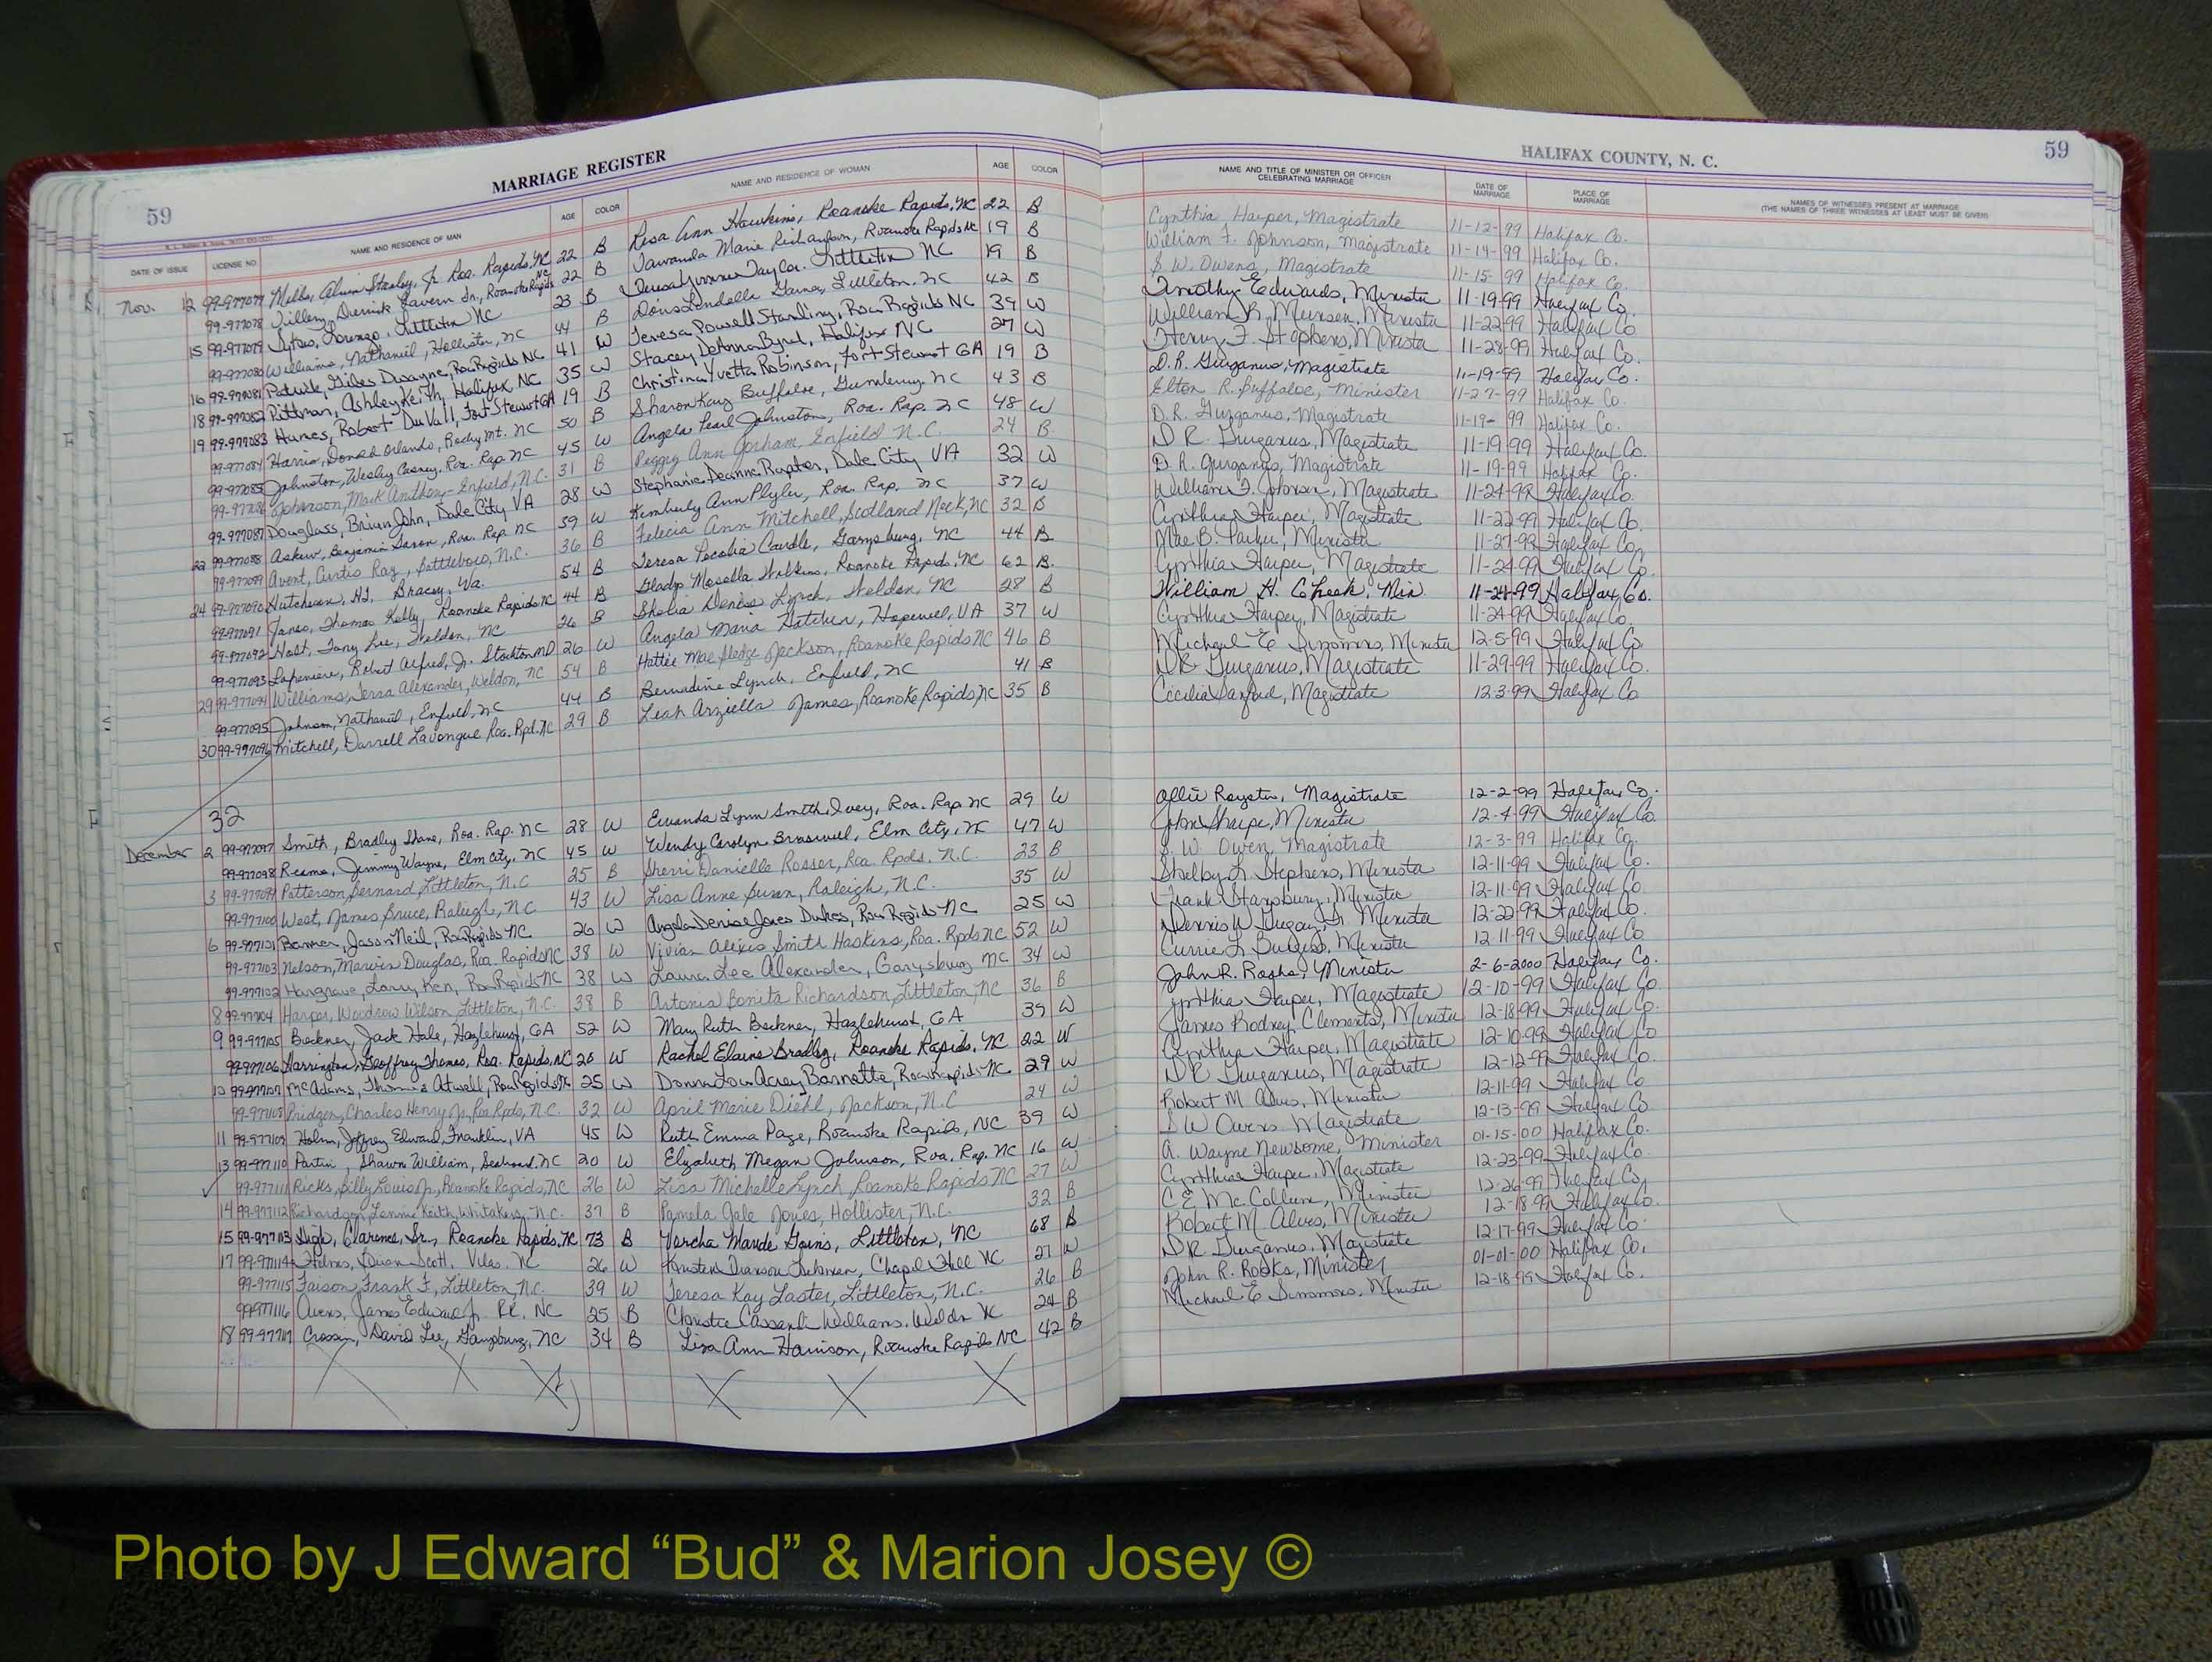 MARRIAGE REGISTER
HALIFAX COUNTY, N. C.
59
59
DATE OF ISSUE LICENSE NO. NAME AND RESIDENCE OF MAN AGE COLOR NAME AND RESIDENCE OF WOMAN AGE COLOR NAME AND TITLE OF MINISTER OR OFFICER CELEBRATING MARRIAGE DATE OF MARRIAGE PLACE OF MARRIAGE NAMES OF WITNESSES PRESENT AT MARRIAGE (THE NAMES OF THREE WITNESSES AT LEAST MUST BE GIVEN)
Nov. 12 99-977077 Stanley, Jr. Roa. Rapids, NC 22 B Ann Hawkins, Roanoke Rapids, NC 22 B Cynthia Harper, Magistrate 11-12-99 Halifax Co.
99-977078 Derrick Lavern Sr., Roanoke Rapids NC 22 B Marie Richardson, Roanoke Rapids NC 19 B William F. Johnson, Magistrate 11-14-99 Halifax Co.
15 99-977079 Lorenzo, Littleton NC 23 B Littleton NC 19 B S. W. Owens, Magistrate 11-15-99 Halifax Co.
99-977080 Williams, Nathaniel, Hollister, NC 44 B Littleton, NC 42 B Timothy Edwards, Minister 11-19-99 Halifax Co.
16 99-977081 Patrick, Giles Dwayne, Roa Rapids NC 41 W Teresa Powell Starling, Roa Rapids NC 39 W William R. Minister 11-22-99 Halifax Co
18 99-977082 Pittman, Ashley Keith, Halifax, NC 35 W Stacey DeAnna Byrd, Halifax NC 27 W Henry F. Stephens, Minister 11-28-99 Halifax Co.
19 99-977083 Robert DuVall, Fort Stewart GA 19 B Christina Yvetta Robinson, Fort Stewart GA 19 B D.R. Gurganus, Magistrate 11-19-99 Halifax Co.
99-977084 Harris, Donald Orlando, Rocky Mt. NC 50 B Sharon Kay Buffaloe, Gumberry, NC 43 B Elton R. Buffaloe, Minister 11-27-99 Halifax Co.
99-977085 Johnston, Wesley Roa. Rap. NC 45 W Angela Pearl Johnston, Roa. Rap. NC 48 W D.R. Gurganus, Magistrate 11-19-99 Halifax Co.
99-977086 Johnson, Mark Anthony - Enfield, N.C. 31 B Peggy Ann Gorham, Enfield N.C. 24 B D R. Gurganus, Magistrate 11-19-99 Halifax Co.
99-977087 Douglass, Brian John, Dale City VA 28 W Stephanie Deanne Dale City VA 32 W D. R. Gurganus, Magistrate 11-19-99 Halifax Co.
22 99-977088 Askew, Benjamin Roa. Rap NC 59 W Kimberly Ann Plyler, Roa. Rap, NC 37 W William F. Johnson, Magistrate 11-24-99 Halifax Co.
99-977089 Avent, Curtis Ray, Battleboro, N.C. 36 B Felecia Ann Mitchell, Scotland Neck, NC 32 B Cynthia Harper, Magistrate 11-22-99 Halifax Co.
24 99-977090 Bracey, Va. 54 B Teresa Garysburg, NC 44 B Mae B. Parker, Minister 11-27-99 Halifax Co.
99-977091 Jones, Thomas Kelly, Roanoke Rapids NC 44 B Gladys Roanoke Rapids, NC 62 B Cynthia Harper, Magistrate 11-24-99 Halifax Co.
99-977092 Tony Lee, Weldon, NC 26 B Denise Lynch, Weldon, NC 28 B William H. Cheek, Min 11-28-99 Halifax Co.
99-977093 Robert Alfred, Jr. Stockton MD 26 W Angela Maria Hopewell, VA 37 W Cynthia Harper, Magistrate 11-24-99 Halifax Co.
29 99-977094 Williams, Alexander, Weldon, NC 54 B Hattie Mae Pledge Jackson, Roanoke Rapids NC 46 B Michael E Simmons, Minister 12-5-99 Halifax Co
99-977095 Johnson, Nathaniel, Enfield, NC 44 B Bernadine Lynch, Enfield, NC 41 B DR Gurganus, Magistrate 11-29-99 Halifax Co.
30 99-977096 Mitchell, Darrell Roa. Rpd. NC 29 B Leah Arziella James, Roanoke Rapids, NC 35 B Cecelia Magistrate 12-3-99 Halifax Co
32
December 2 99-977097 Smith, Bradley Shane, Roa. Rap. NC 28 W Lynn Smith Ivey, Roa. Rap. NC 29 W Ollie Royster, Magistrate 12-2-99 Halifax Co.
99-977098 Reams, Jimmy Wayne, Elm City, NC 45 W Wendy Carolyn Braswell, Elm City, NC 47 W John Sharpe, Minister 12-4-99 Halifax Co
3 99-977099 Patterson, Bernard, Littleton, N.C 25 B Sherri Danielle Rosser, Roa. Rpds. N.C. 23 B S. W. Owen, Magistrate 12-3-99 Halifax Co.
99-977100 West, James Bruce, Raleigh, N.C 43 W Lisa Anne Raleigh, N.C. 35 W Shelby L Stephens, Minister 12-11-99 Halifax Co.
6 99-977101 Jason Neil, Roa Rapids NC 26 W Angela Denise Jones Dukes, Roa Rapids NC 25 W Frank Stansbury, Minister 12-11-99 Halifax Co
99-977103 Nelson, Marvin Douglas, Roa. Rapids NC 38 W Vivian Alexis Smith Haskins, Roa. Rpds NC 52 W Dennis W. Minister 12-22-99 Halifax Co.
99-977102 Hargrave, Larry Ken, Roa Rapids NC 38 W Laura Lee Alexander, Garysburg NC 34 W Currie L Minister 12-11-99 Halifax Co
8 99-977104 Harper, Woodrow Wilson, Littleton, N.C. 38 B Antonia Bonita Richardson, Littleton, NC 36 B John R. Minister 2-6-2000 Halifax Co.
9 99-977105 Beckner, Jack Hale, Hazlehurst, GA 52 W Mary Ruth Beckner, Hazlehurst, GA 39 W Cynthia Harper, Magistrate 12-10-99 Halifax Co
99-977106 Harrington, Geoffrey Thomas, Roa. Rapids, NC 26 W Rachel Elaine Bradley, Roanoke Rapids, NC 22 W James Rodney Clements, Minister 12-18-99 Halifax Co.
10 99-977107 McAdams, Thomas Atwell, Roa Rapids NC 25 W Donna Lou Acree Barnette, Roa Rapids NC 29 W Cynthia Harper, Magistrate 12-10-99 Halifax Co
99-977108 Pridgen, Charles Henry Jr, Roa Rpds, N.C. 32 W April Marie Diehl, Jackson, N.C 24 W DR Gurganus, Magistrate 12-12-99 Halifax Co.
11 99-977109 Holm, Jeffrey Edward, Franklin, VA 45 W Ruth Emma Page, Roanoke Rapids, NC 39 W Robert M Alves, Minister 12-11-99 Halifax Co
13 99-977110 Partin, Shawn William, Seaboard, NC 20 W Elizabeth Megan Johnson, Roa. Rap. NC 16 W S W Owens Magistrate 12-13-99 Halifax Co
99-977111 Ricks, Billy Louis Jr, Roanoke Rapids, NC 26 W Lisa Michelle Lynch, Roanoke Rapids NC 27 W A. Wayne Newsome, Minister 01-15-00 Halifax Co.
14 99-977112 Richardson, Lennie Keith, Whitakers, N.C. 37 B Pamela Gale Jones, Hollister, N.C. 32 B Cynthia Harper, Magistrate 12-23-99 Halifax Co.
15 99-977113 High, Clarence, Sr., Roanoke Rapids, NC 73 B Maude Goins, Littleton, NC 68 B C E McCollum, Minister 12-26-99 Halifax Co.
17 99-977114 Scott, NC 26 W Kristen Chapel Hill NC 27 W Robert M. Alves, Minister 12-18-99 Halifax Co.
99-977115 Faison, Frank F, Littleton, N.C. 39 W Teresa Kay Laster, Littleton, N.C. 26 B DR Gurganus, Magistrate 12-17-99 Halifax Co.
99-977116 James Edward Jr. RR, NC 25 B Williams, NC 24 B John R. Rooks, Minister 01-01-00 Halifax Co.
18 99-977117 David Lee, NC 34 B Lisa Ann Harrison, Roanoke Rapids NC 42 B Michael E Simmons, Minister 12-18-99 Halifax Co.
X X X X X X
Photo by J Edward “Bud” & Marion Josey ©